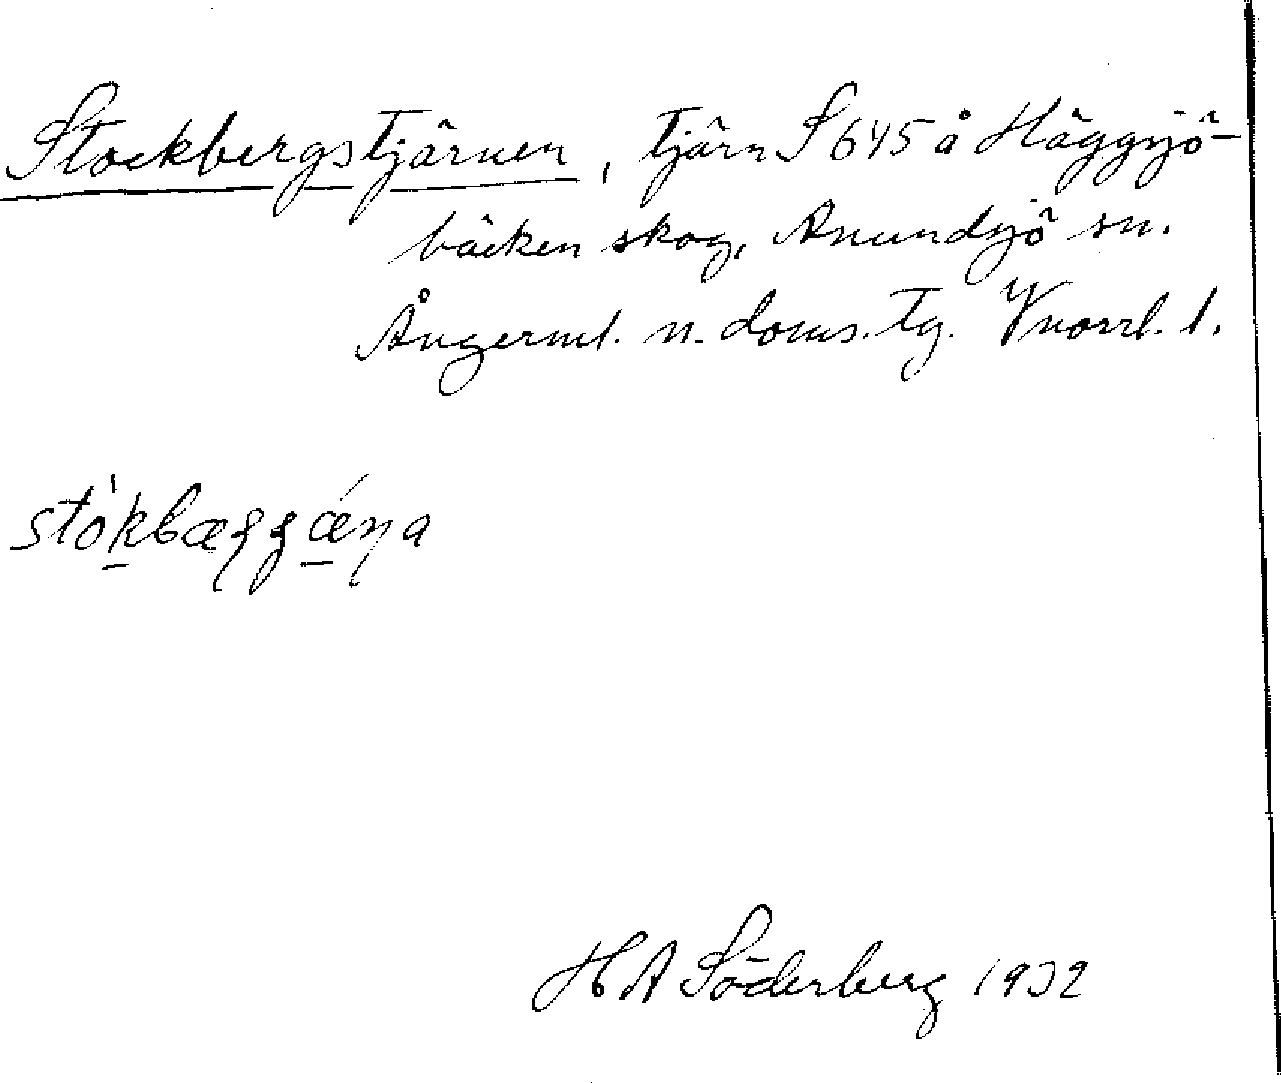 Stockbergstjärnen, tjärn S 645 å Häggsjö-
bäcken skog, Anundsjö sn.
Ångerml. n. doms. tg. Vnorrl. l.
HA Söderberg 1932